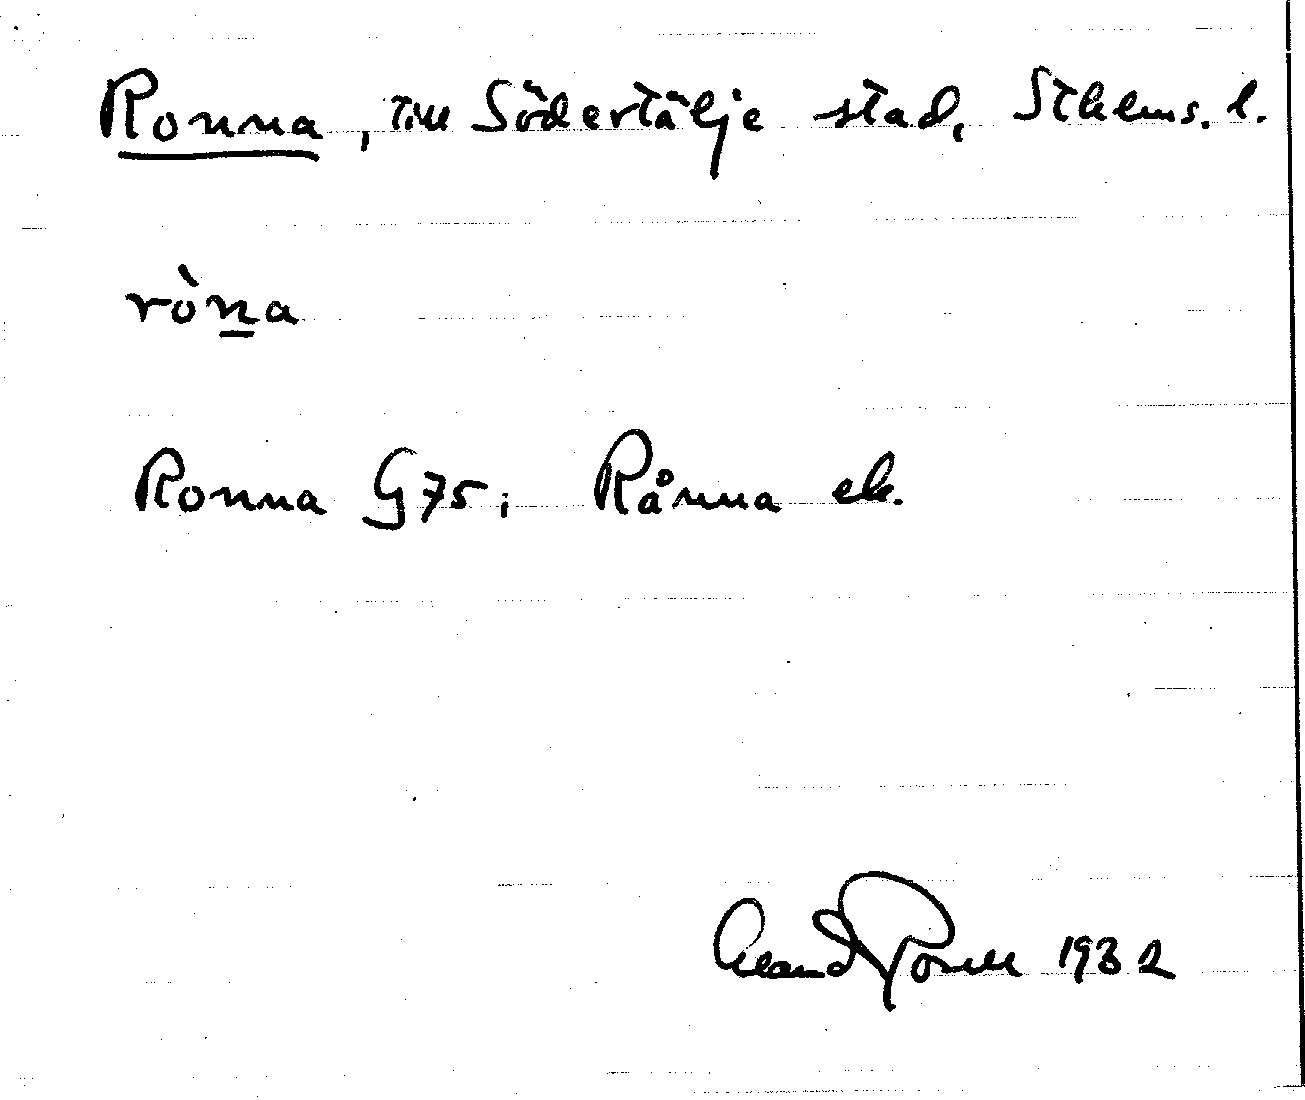 Ronna, till Södertälje stad, Sthlms. l.
ròn̲a
Ronna G75; Rånna ek.
1932